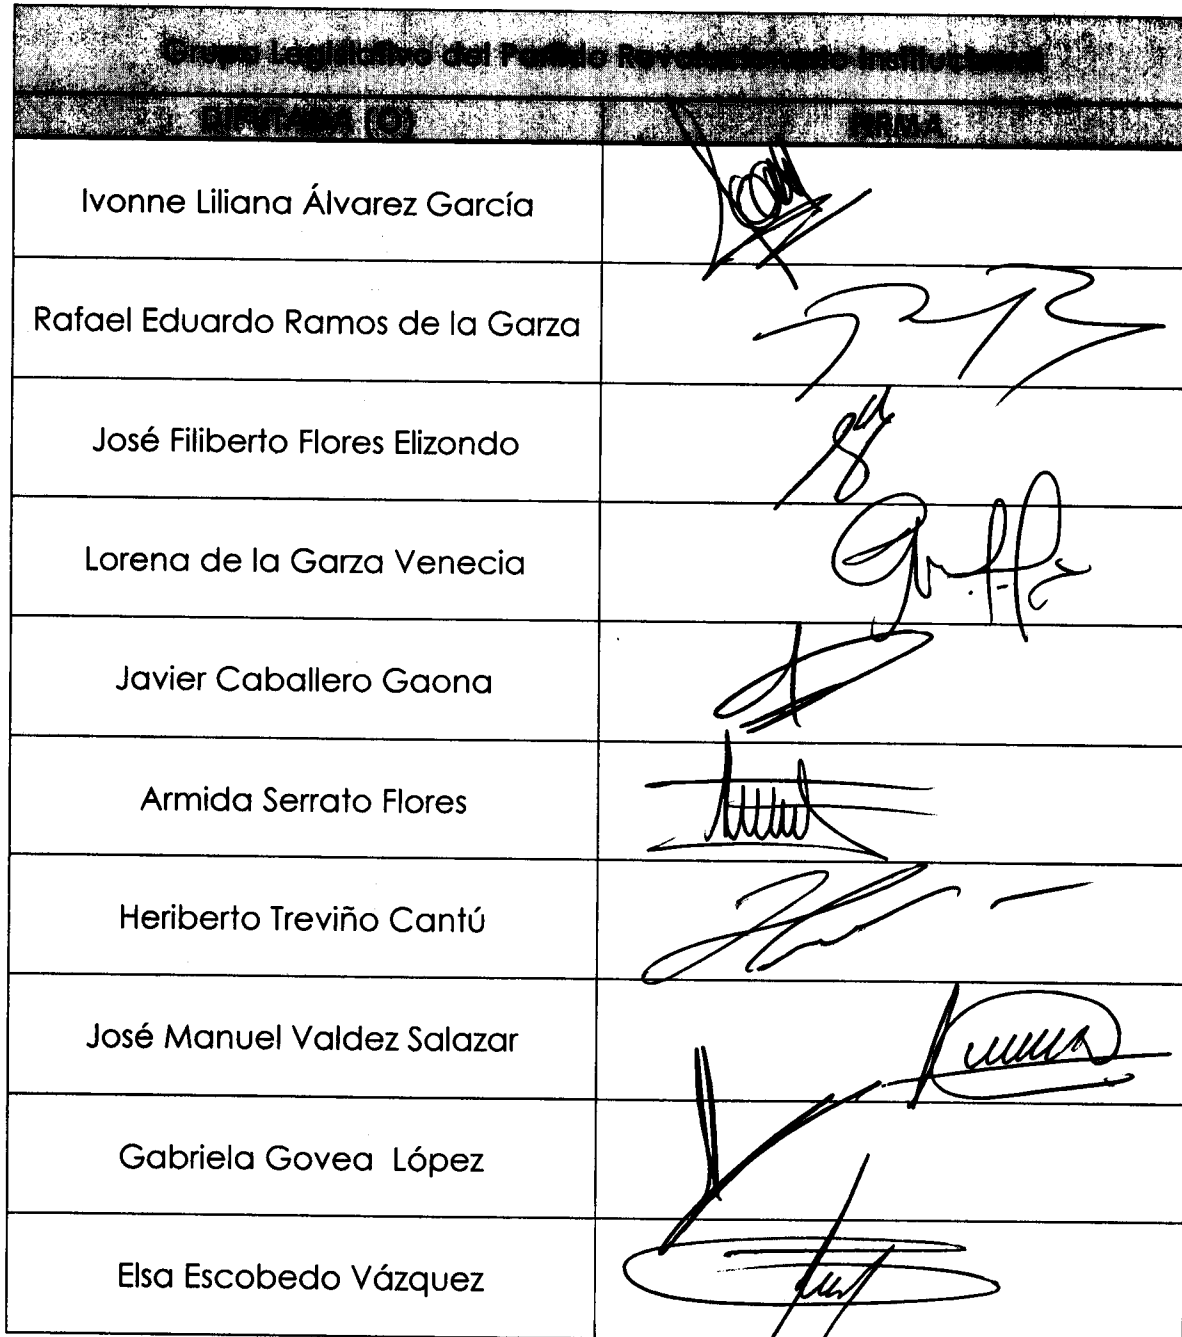 Grupo Legislativo del Partido Revolucionario Institucional
DIPUTADA (O) FIRMA
Ivonne Liliana Álvarez García
Rafael Eduardo Ramos de la Garza
José Filiberto Flores Elizondo
Lorena de la Garza Venecia
Javier Caballero Gaona
Armida Serrato Flores
Heriberto Treviño Cantú
José Manuel Valdez Salazar
Gabriela Govea López
Elsa Escobedo Vázquez